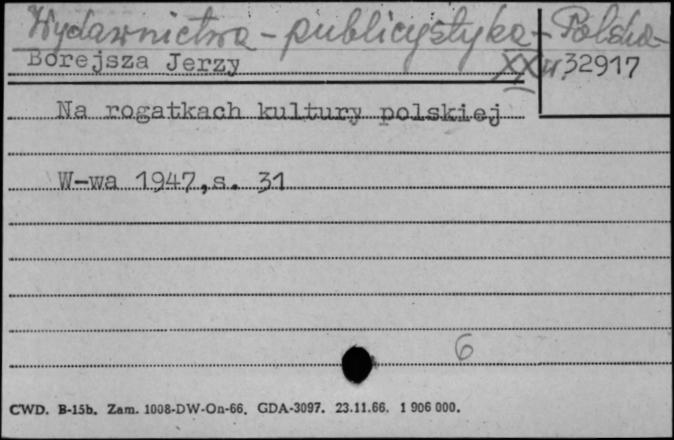 Wydawnictwa - publicystyka - Polska -
XX w.
Borejsza Jerzy
32917
Na rogatkach kultury polskiej
W-wa 1947,s. 31
6
CWD. B-15b. Zam. 1008-DW-On-66. GDA-3097. 23.11.66. 1 906 000.